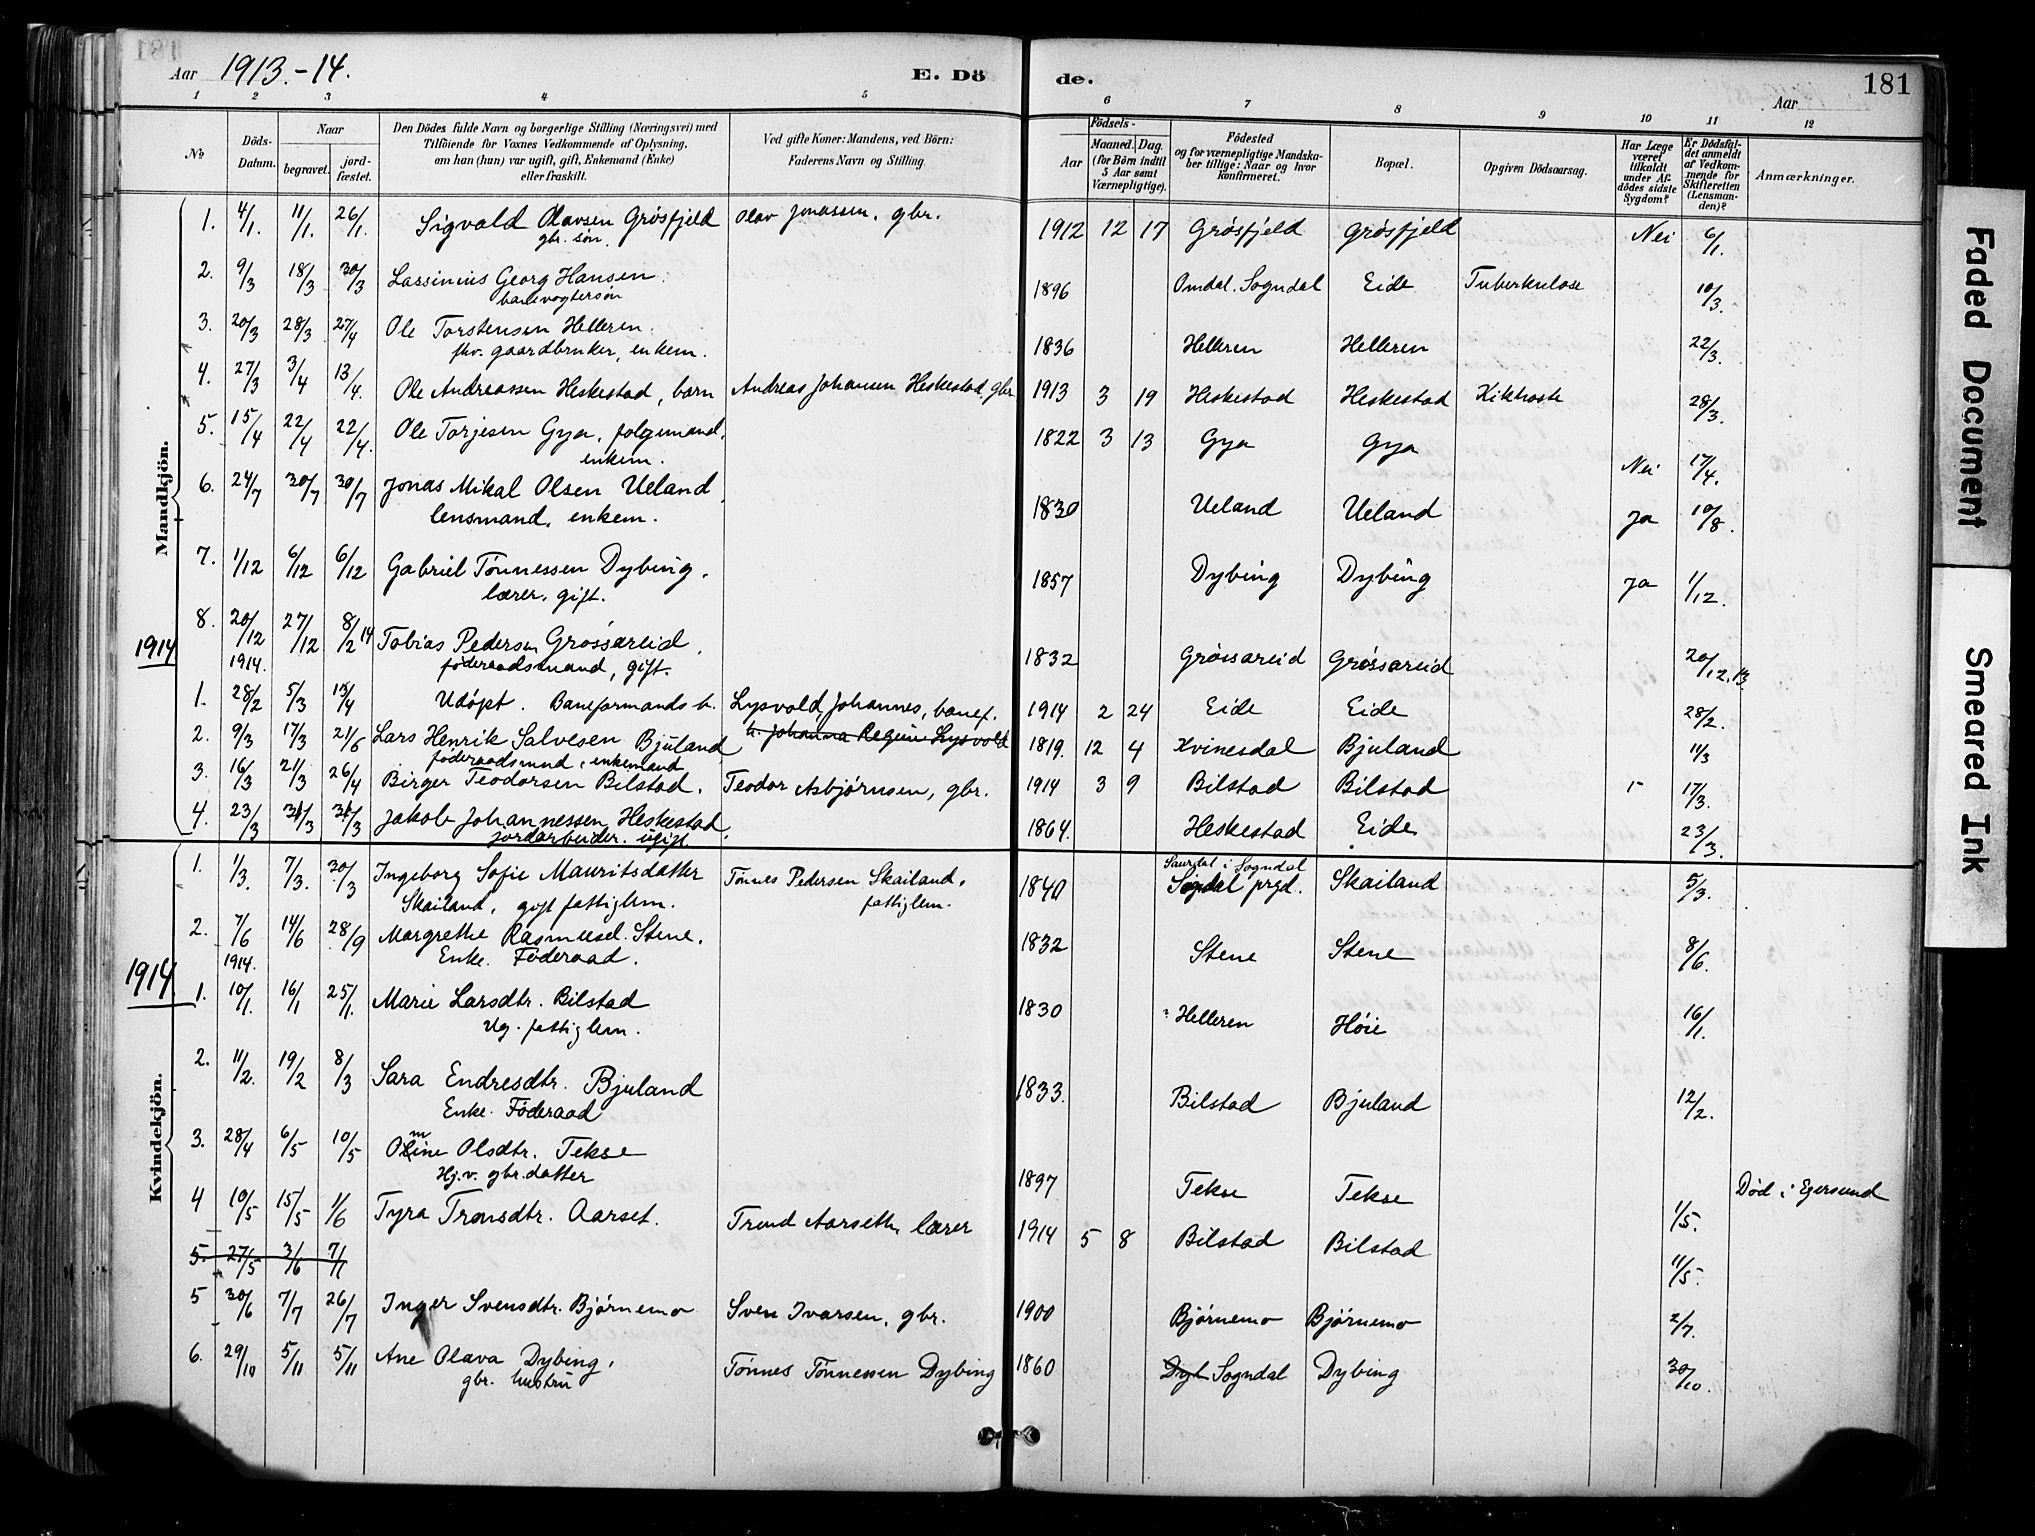 181
Aar 1913.-14.
E. Dö de.
Aar
1 2 3 4 5 6 7 8 9 10 11 12
No.
Döds-Datum.
Naar
begravet.
jord-fæstet.
Den Dödes fulde Navn og borgerlige Stilling (Næringsvei) med
Tilföiende for Voxnes Vedkommende af Oplysning,
om han (hun) var ugift, gift, Enkemand (Enke)
eller fraskilt.
Ved gifte Koner: Mandens, ved Börn:
Faderens Navn og Stilling.
Födsels-
Aar
Maaned. Dag.
(for Börn indtil
5 Aar samt
Værnepligtige).
Födested
og for værnepligtige Mandska-
ber tillige: Naar og hvor
konfirmeret.
Bopæl.
Opgiven Dödsaarsag.
Har Læge
været
tilkaldt
under Af-
dödes sidste
Sygdom?
Er Dödsfal-
det anmeldt
af Vedkom-
mende for
Skifteretten
(Lensman-
den)?
Anmærkninger.
Mandkjön.
1. 4/1. 11/1. 26/1. Sigvald Olavsen Grösfjeld Olav Jonassen, gbr. 1912 12 17 Grösfjeld Grösfjeld Nei 6/1.
gbr. søn.
2. 9/3 18/3 30/3 Lassinius Georg Hansen 1896 Omdal. Sogndal Eide Tuberkulose 10/3.
banevogtersøn
3. 20/3 28/3 27/4 Ole Torstensen Helleren. 1836 Helleren Helleren 22/3.
fhv. gaardbruker, enkem.
4. 27/3 3/4 13/4. Ole Andreassen Heskestad, barn Andreas Johansen Heskestad, gbr 1913 3 19 Heskestad Heskestad Kikhoste 28/3.
5. 15/4 22/4 22/4. Ole Torjesen Gya, folgemand, 1822 3 13 Gya Gya Nei 17/4.
enkem.
6. 24/7 30/7 30/7 Jonas Mikal Olsen Ueland 1830 Ueland Ueland Ja 10/8.
lensmand, enkem.
7. 1/12 6/12 6/12 Gabriel Tønnessen Dybing, 1857 Dybing Dybing Ja 1/12.
lærer, gift.
8. 20/12 27/12 8/2 14 Tobias Pedersen Grøssareid, 1832 Grøssareid Grøssareid 20/12.13.
føderaadsmand, gift.
1914
1914.
1. 28/2 5/3 13/4 Udøpt. Baneformands b. Lysvold, Johannes, banef. 1914 2 24 Eide Eide 28/2.
h. Johanna Regine Lysvold
2. 9/3 17/3 21/6 Lars Henrik Salvesen Bjuland 1819. 12 4 Kvinesdal Bjuland 11/3
føderaadsmnd, enkemand
3. 16/3 21/3 26/4 Birger Teodorsen Bilstad. Teodor Asbjørnsen, gbr. 1914 3 9 Bilstad Bilstad 17/3.
4. 23/3 31/3 31/3 Jakob Johannessen Heskestad. 1864. Heskestad Eide 23/3.
jordarbeider. ugift.
Kvindekjön.
1. 1/3. 7/3. 30/3 Ingeborg Sofie Mauritsdatter Tønnes Pedersen Skailand, 1840 Sogndal prgd. Skailand 5/3.
i Sogndal
Skailand, gift fattiglem. fattiglem.
2. 7/6 14/6 28/9 Margrethe Rasmusd. Stene. 1832 Stene Stene 8/6.
Enke. Föderaad.
1914.
1914
1. 10/1. 16/1 25/1. Marie Larsdtr. Bilstad 1830 Helleren Høie 16/1.
Ug. fattiglem.
2. 11/2. 19/2 8/3 Sara Endresdtr. Bjuland 1833. Bilstad Bjuland 12/2.
Enke. Föderaad
3. 28/4 6/5 10/5 Oline Olsdtr. Tekse 1897 Tekse Tekse 1/5. Død i Egersund
Hj.v. gbr. datter
4 10/5 15/5 1/6 Tyra Tronsdtr. Aarset. Trond Aarseth, lærer 1914 5 8 Bilstad Bilstad 11/5.
5. 27/5 3/6 7/1
5 30/6 7/7 26/7 Inger Svensdtr. Bjørnemo Sven Ivarsen, gbr. 1900 Bjørnemo Bjørnemo 2/7.
6. 29/10 5/11 5/11 Ane Olava Dybing, Tønnes Tønnessen Dybing 1860 Dyb Sogndal Dybing 30/10.
gbr. hustru
Faded Document
Smeared Ink